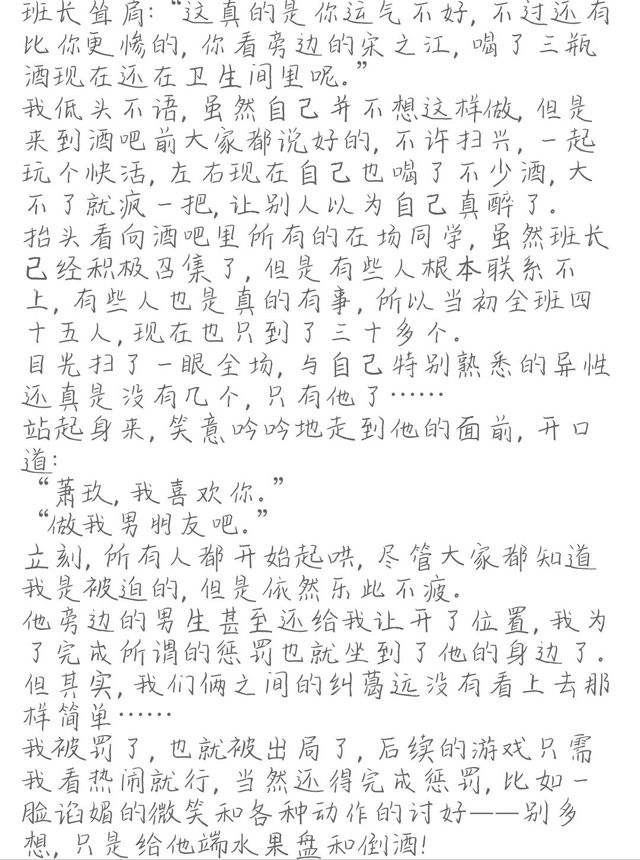 班长耸肩：“这真的是你运气不好，不过还有
比你更惨的，你看旁边的宋之江，喝了三瓶
酒现在还在卫生间里呢。”
我低头不语，虽然自己并不想这样做，但是
来到酒吧前大家都说好的，不许扫兴，一起
玩个快活，左右现在自己也喝了不少酒，大
不了就疯一把，让别人以为自己真醉了。
抬头看向酒吧里所有的在场同学，虽然班长
已经积极召集了，但是有些人根本联系不
上，有些人也是真的有事，所以当初全班四
十五人，现在也只到了三十多个。
目光扫了一眼全场，与自己特别熟悉的异性
还真是没有几个，只有他了……
站起身来，笑意吟吟地走到他的面前，开口
道：
“萧玖，我喜欢你。”
“做我男朋友吧。”
立刻，所有人都开始起哄，尽管大家都知道
我是被迫的，但是依然乐此不疲。
他旁边的男生甚至还给我让开了位置，我为
了完成所谓的惩罚也就坐到了他的身边了。
但其实，我们俩之间的纠葛远没有看上去那
样简单……
我被罚了，也就被出局了，后续的游戏只需
我看热闹就行，当然还得完成惩罚，比如一
脸谄媚的微笑和各种动作的讨好——别多
想，只是给他端水果盘和倒酒！